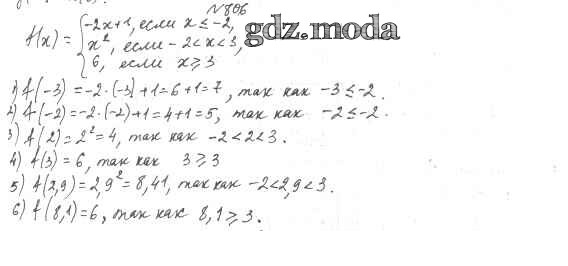 №806
f(x) = { -2x+1, если x ≤ -2,
x², если -2 < x < 3,
6, если x ≥ 3
gdz.moda
1) f(-3) = -2·(-3)+1=6+1=7, так как -3 ≤ -2.
2) f(-2)=-2·(-2)+1=4+1=5, так как -2 ≤ -2.
3) f(2)=2²=4, так как -2<2<3.
4) f(3)=6, так как 3 ≥ 3
5) f(2,9)=2,9²=8,41, так как -2<2,9<3.
6) f(8,1)=6, так как 8,1 ≥ 3.